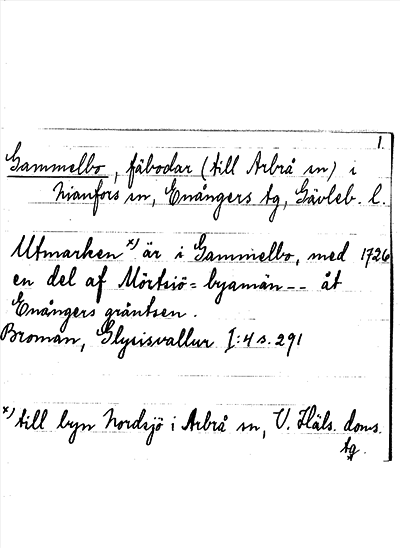 1.
Gammelbo, fäbodar (till Arbrå sn) i
Nianfors sn, Enångers tg, Gävleb. l.
Utmarken x) är i Gammelbo, med 1726
en del af Mörtsiö=byamän -- åt
Enångers gräntsen.
Broman, Glysisvallur I:4 s. 291
x) till byn Nordsjö i Arbrå sn, V. Häls. doms.
tg.